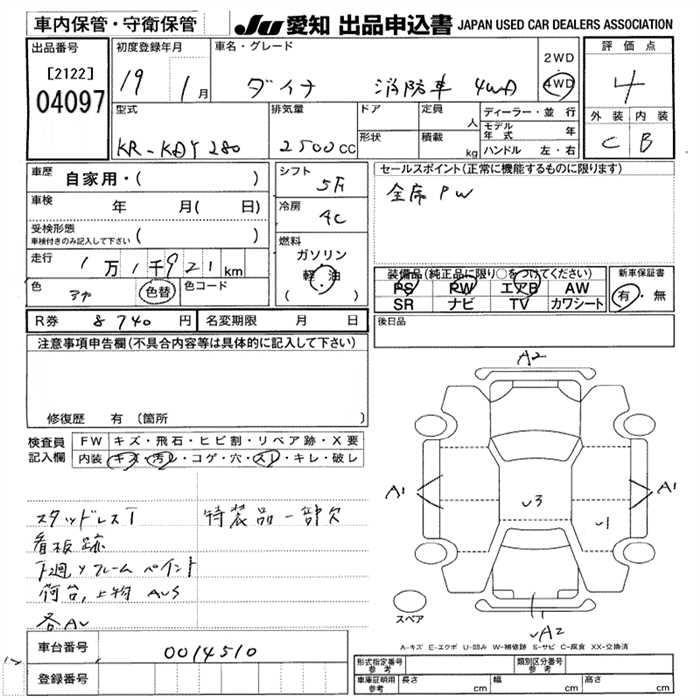 車内保管・守衛保管
JU 愛知 出品申込書 JAPAN USED CAR DEALERS ASSOCIATION
出品番号
[2122]
04097
初度登録年月
19 1月
車名・グレード
ダイナ 消防車 4WD
2WD
4WD
評価点
4
外装 内装
C B
型式
KR-KDY280
排気量
2500cc
ドア
形状
定員
人
積載
kg
ディーラー・並行
モデル年式 年
ハンドル 左・右
車歴
自家用・( )
車検
年 月( 日)
受検形態
車検付きのみ記入して下さい ( )
走行
1万1千921km
色
アカ
色替
色コード
シフト
5F
冷房
AC
燃料
ガソリン
軽油
( )
セールスポイント(正常に機能するものに限ります)
全席PW
装備品(純正品に限り○をつけてください)
PS PW エアB AW
SR ナビ TV カワシート
新車保証書
有・無
R券 8740円
名変期限 月 日
後日品
注意事項申告欄(不具合内容等は具体的に記入して下さい)
修復歴 有(箇所 )
検査員記入欄
FW キズ・飛石・ヒビ割・リペア跡・X要
内装 キズ・汚レ・コゲ・穴・スレ・キレ・破レ
スタッドレスT
特装品一部欠
看板跡
下廻りフレームペイント
荷台,上物AUS
各AU
A2
A1
A1
U3
U1
UA2
スペア
A-キズ E-エクボ U-凹み W-補修跡 S-サビ C-腐食 XX-交換済
車台番号
0014510
登録番号
形式指定番号
参考
類別区分番号
参考
車庫証明用
参考
長さ cm
幅 cm
高さ cm